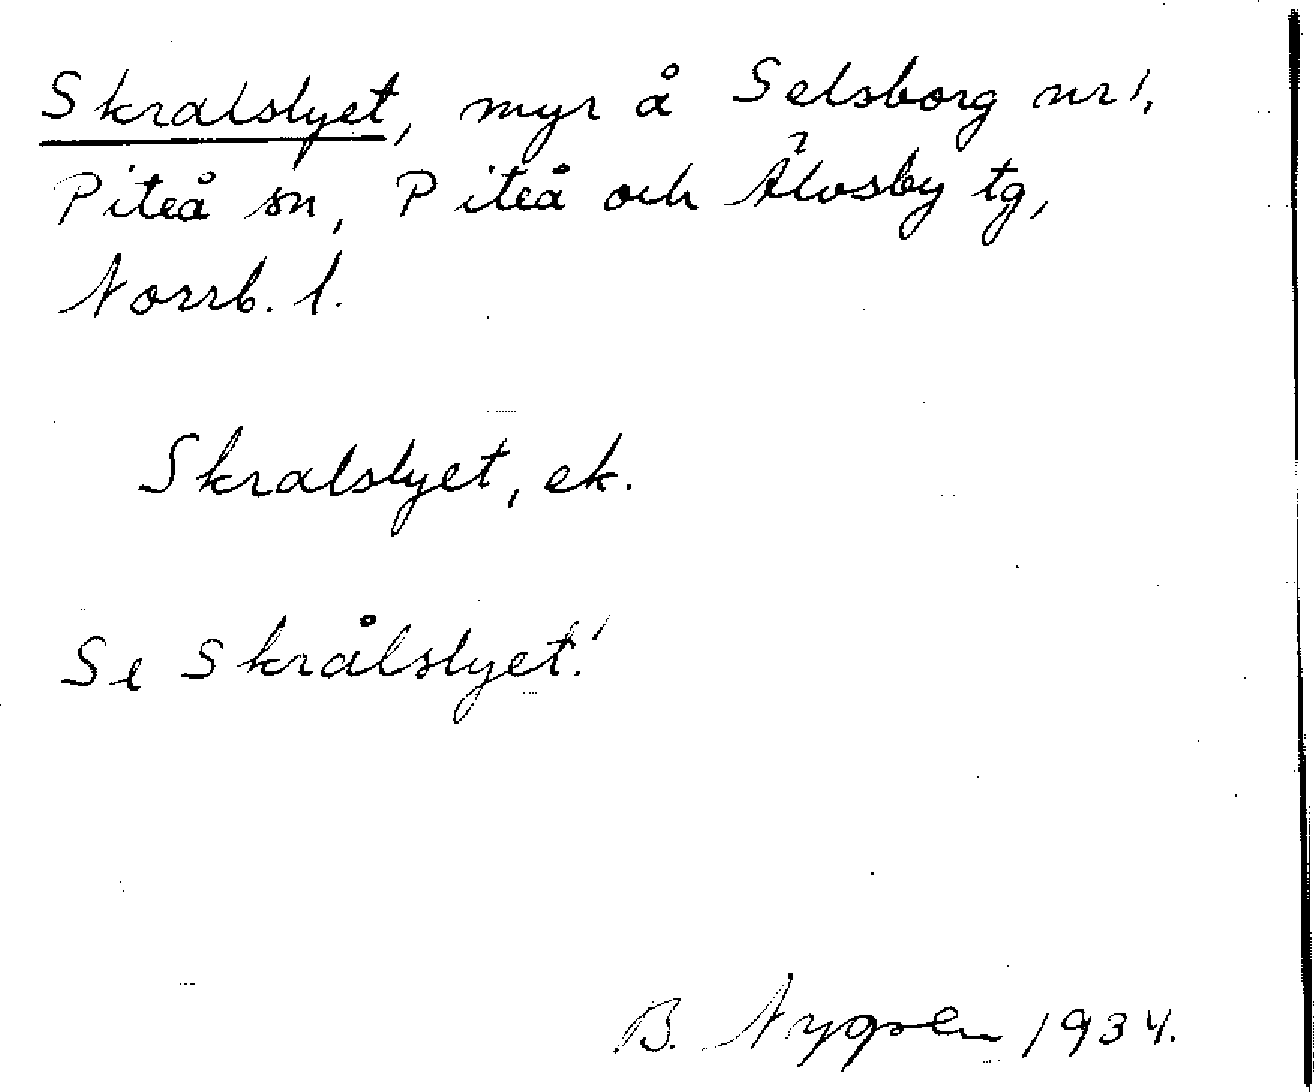 Skralslyet, myr å Selsborg nr 1,
Piteå sn, Piteå och Älvsby tg,
Norrb. l.
Skralslyet, ek.
Se Skrålslyet!
B. 1934.